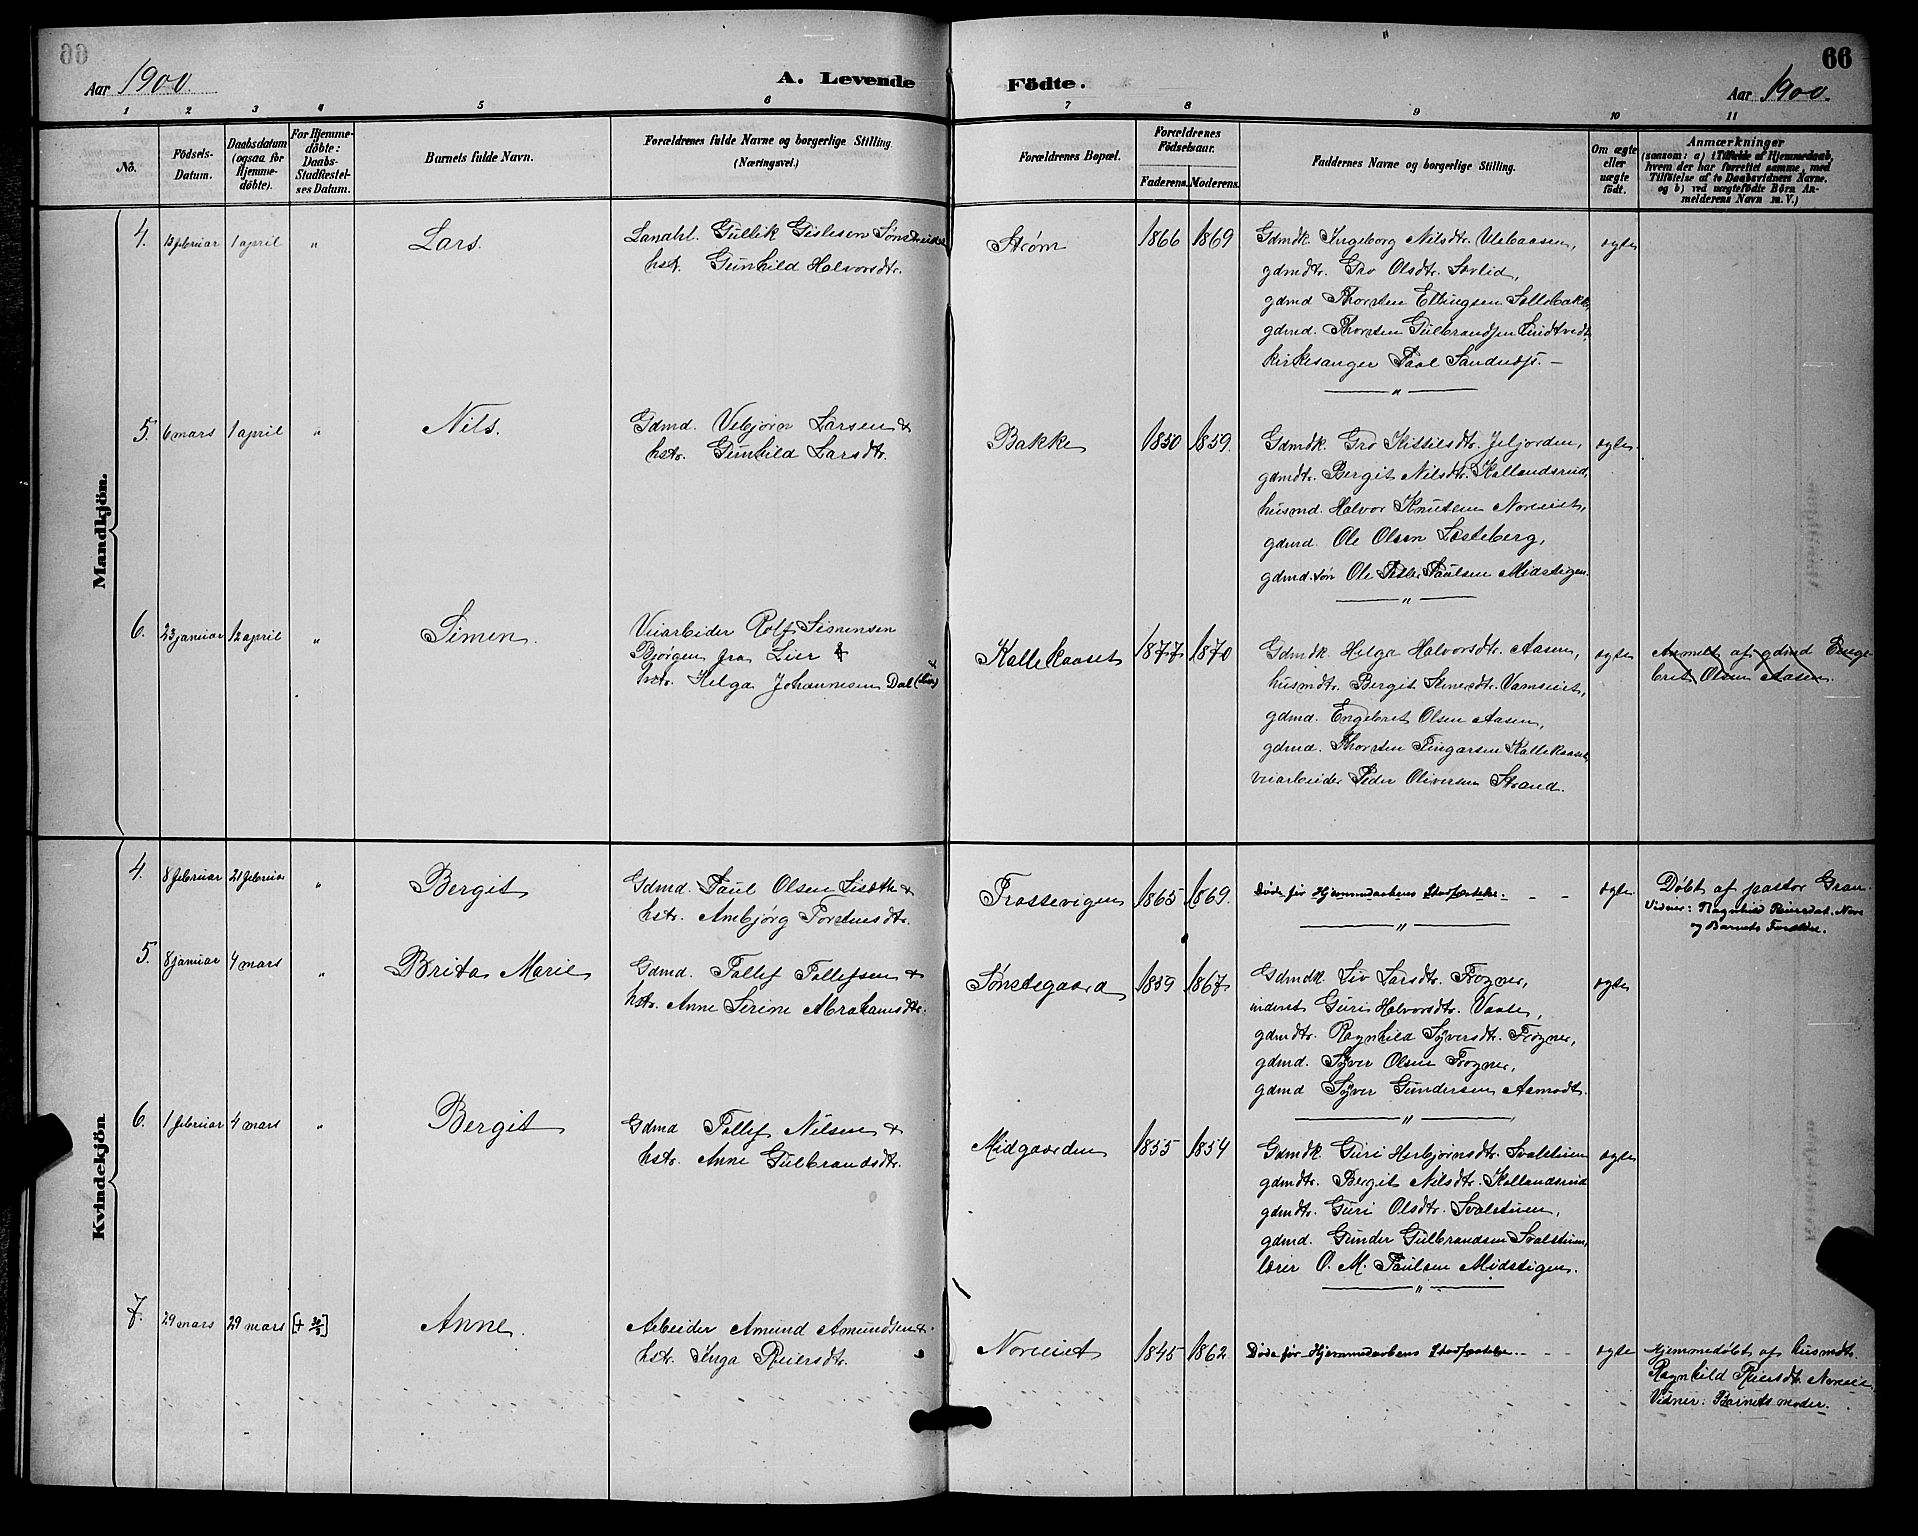 66
Aar 1900.
A. Levende
Födte.
Aar 1900.
1 2 3 4 5 6 7 8 9 10 11
No.
Födsels-
Datum.
Daabsdatum
(ogsaa for
Hjemme-
döbte).
For Hjemme-
döbte:
Daabs-
Stadfæstel-
ses Datum.
Barnets fulde Navn.
Forældrenes fulde Navne og borgerlige Stilling.
(Næringsvei.)
Forældrenes Bopæl.
Forældrenes
Födselsaar.
Faderens. Moderens.
Faddernes Navne og borgerlige Stilling.
Om ægte
eller
uægte
födt.
Anmærkninger
(saasom: a) i Tilfælde af Hjemmedaab,
hvem der har forrettet samme, med
Tilföielse af to Daabsvidners Navne,
og b) ved uægtefödte Börn An-
melderens Navn m. V.)
Mandkjön.
4. 13 februar 1 april " Lars.
Landhl. Gullik Gislesen
hst. Gunhild Halvorsdtr.
Strøm 1866 1869
Gdmdk. Ingeborg Nilsdtr. Ulebaasen,
gdmdtr. Gro Olsdtr. Sørlid,
gdmd Thorsten Ellingsen
gdmd. Thorsten Gulbrandsen
kirkesanger Paal —
"
ægte
5. 6 mars 1 april " Nils.
Gdmd. Vebjørn Larsen &
hstr. Gunhild Larsdtr.
Bakke 1850 1859.
Gdmdk. Gro Kittilsdtr. Jeljorden,
gdmdtr. Bergit Nilsdtr. Kallandsrud,
husmd. Halvor Knutsen Noreiet,
gdmd. Ole Olsen Læsteberg,
gdmd. søn Ole Peder Paulsen Midstigen.
"
ægte
6. 23 januar 12 april " Simen.
Veiarbeider Rolf Simensen
Bjørgen fra Lier &
hstr. Helga Johannesen Dal (Lier)
Kallekaaset 1877 1870
Gdmdk. Helga Halvorsdtr. Aasen,
husmdtr. Bergit Vamseiet,
gdmd. Engebret Olsen Aasen,
gdmd. Thorsten Fingarsen Kallekaaset,
veiarbeider Peder Oliversen Strand.
ægte
Anmeldt af gdmd Enge-
bret Olsen Aasen
Kvindekjön
4. 8 februar 21 februar " Bergit
Gdmd. Paul Olsen &
hstr. Ambjørg Torstensdtr.
Frossevigen 1865 1869.
Døde før Hjemmedaabens Stadfæstelse. - -
"
ægte
Døbt af pastor Gran.
Vidner: Ragnhild Reiersdat. Nore
og Barnets Forældre.
5. 8 januar 4 mars " Brita Marie
Gdmd. Tollef Tollefsen &
hstr. Anne Serine Abrahamsdtr.
Sønstegaard 1859 1867
Gdmdk. Liv Larsdtr. Frogner,
inderst Guri Halvorsdtr. Vaale,
gdmdtr. Ragnhild Syversdtr. Frogner,
gdmd. Syver Olsen Frogner,
gdmd Syver Gundersen Asmodt.
"
ægte
6. 1 februar 4 mars " Bergit
Gdmd Tollef Nilsen &
hstr. Anne Gulbrandsdtr.
Midgaarden 1855 1854
Gdmdk. Guri Herbjørnsdtr. Svalstuen
gdmdtr. Bergit Nilsdtr. Kallandsrud
gdmdtr. Guri Olsdtr. Svalstuen,
gdmd. Gunder Gulbrandsen Svalstuen,
lærer O. M. Paulsen Midstigen.
"
ægte
7. 29 mars 29 mars [+ 30/3] Anne.
Arbeider Amund Amundsen &
hstr. Inga Reiersdtr.
Noreiet 1845 1862
Døde før Hjemmedaabens Stadfæstelse. - -
ægte
Hjemmedøbt af husmdtr.
Ragnhild Reiersdtr. Noreie
Vidner: Barnets moder.